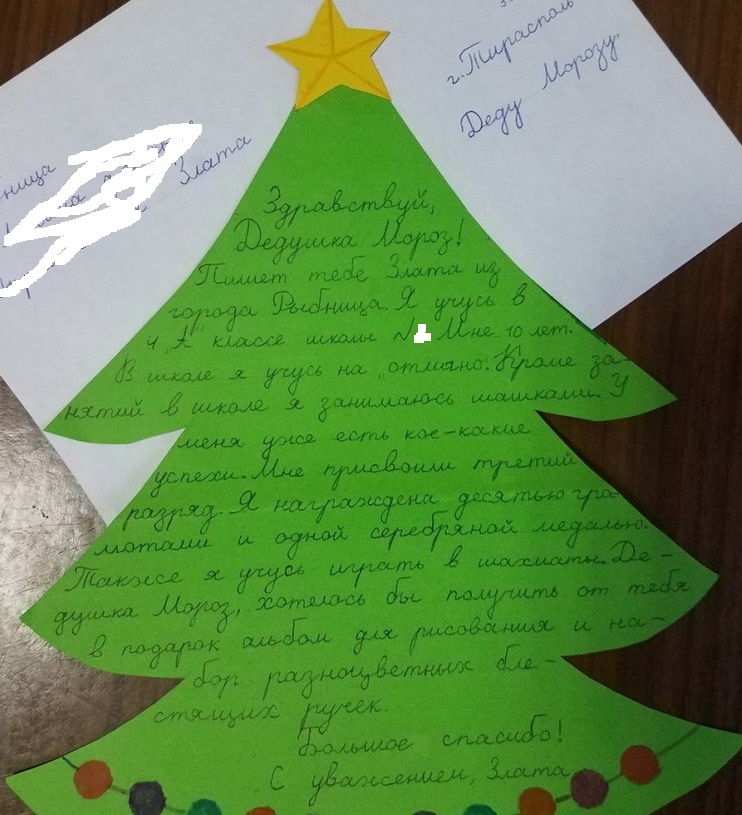 г. Тирасполь
Деду Морозу.
Злата
Здравствуй,
Дедушка Мороз!
Пишет тебе Злата из
города Рыбница. Я учусь в
4 „А" классе школы № Мне 10 лет.
В школе я учусь на „отлично". Кроме за-
нятий в школе я занимаюсь шашками. У
меня уже есть кое-какие
успехи. Мне присвоили третий
разряд. Я награждена десятью гра-
мотами и одной серебряной медалью.
Также я учусь играть в шахматы. Де-
душка Мороз, хотелось бы получить от тебя
в подарок альбом для рисования и на-
бор разноцветных бле-
стящих ручек.
Большое спасибо!
С уважением, Злата